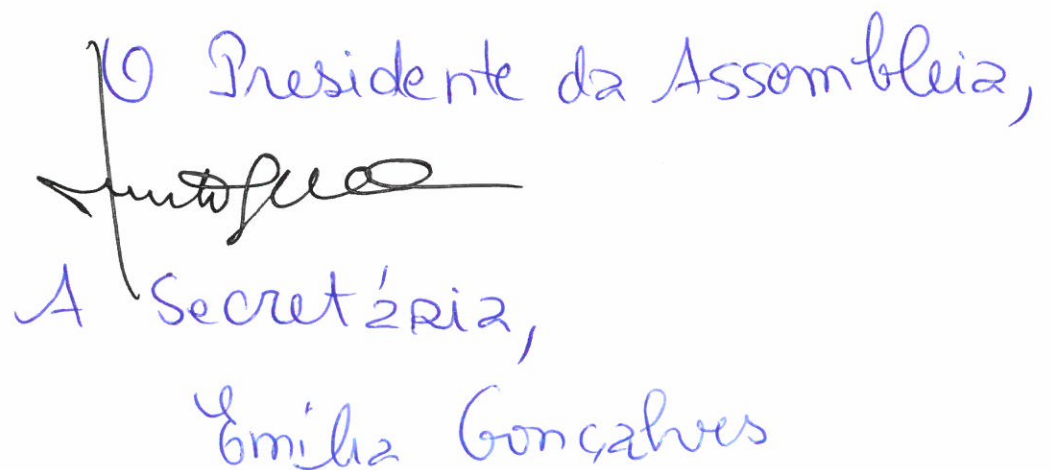 O Presidente da Assembleia,
A Secretária,
Emília Gonçalves